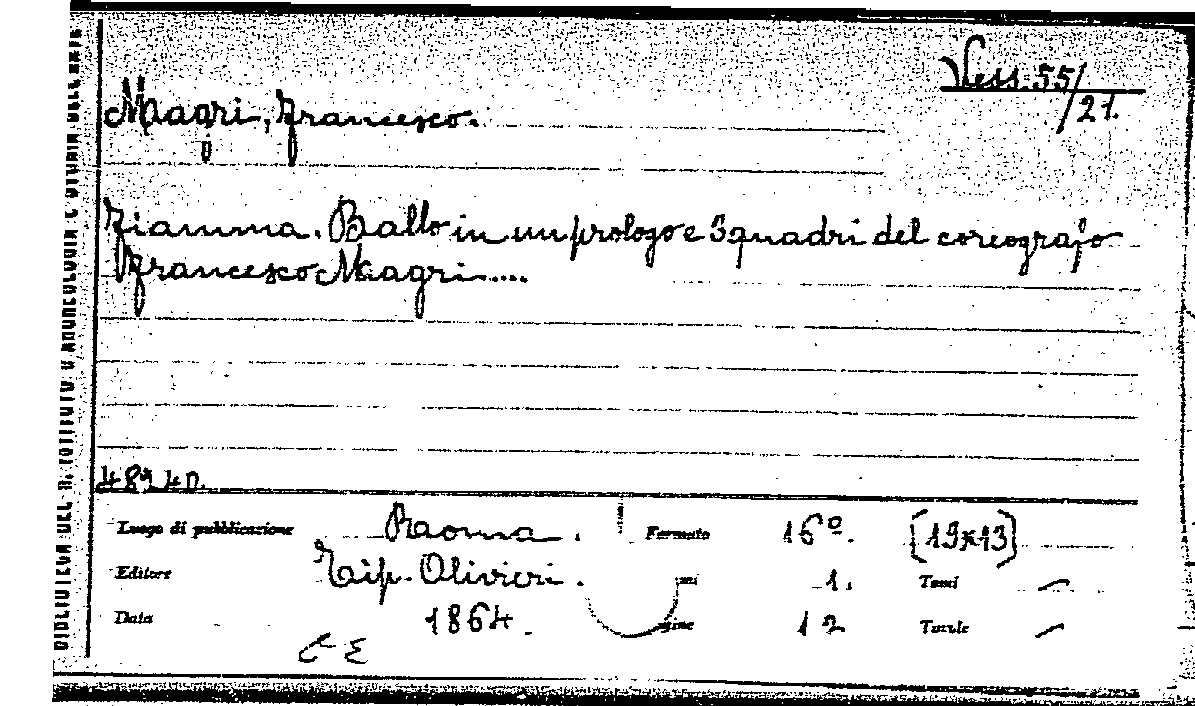 Vess. 55/21.
Magri, Francesco.
Fiamma. Ballo in un prologo e 5 quadri del coreografo
Francesco Magri....
Luogo di pubblicazione Roma. Formato 16º. [19x13]
Editore Tip. Olivieri. 1. Tomi
Data 1864. 12 Tavole
BIBLIOTECA DEL R. ISTITUTO D'ARCHEOLOGIA E STORIA DELL'ARTE